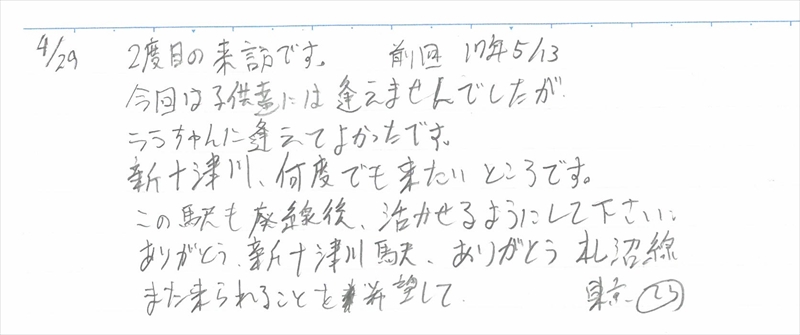 4/29 2度目の来訪です。 前回 17年5/13
今回は子供達には逢えませんでしたが
ララちゃんに逢えてよかったです。
新十津川、何度でも来たいところです。
この駅も廃線後、活かせるようにして下さい。
ありがとう、新十津川駅、ありがとう 札沼線
また来られることを希望して 東京